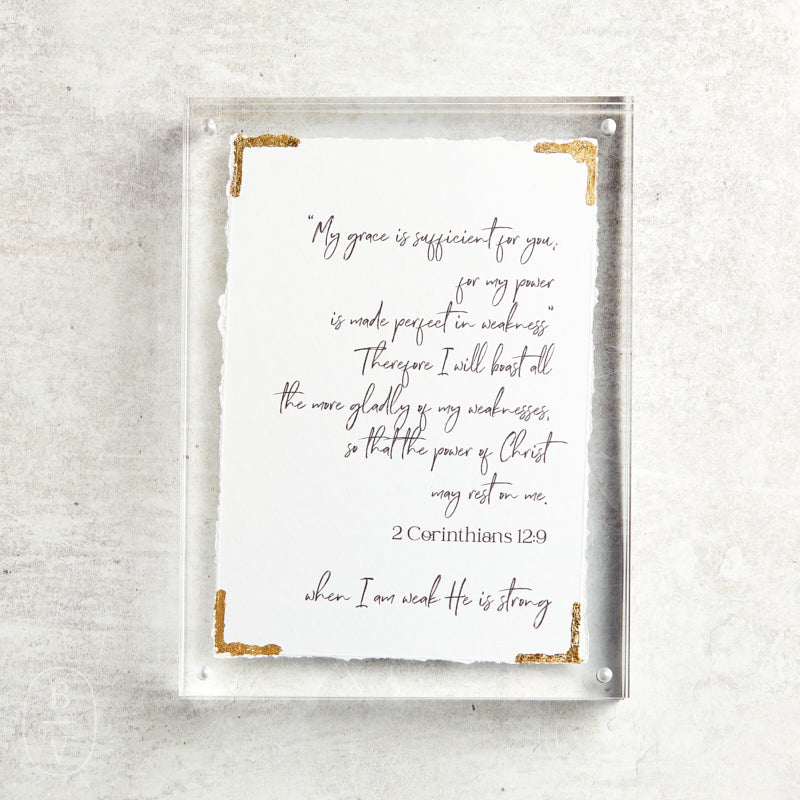 “My grace is sufficient for you;
for my power
is made perfect in weakness”
Therefore I will boast all
the more gladly of my weaknesses,
so that the power of Christ
may rest on me.
2 Corinthians 12:9
when I am weak He is strong